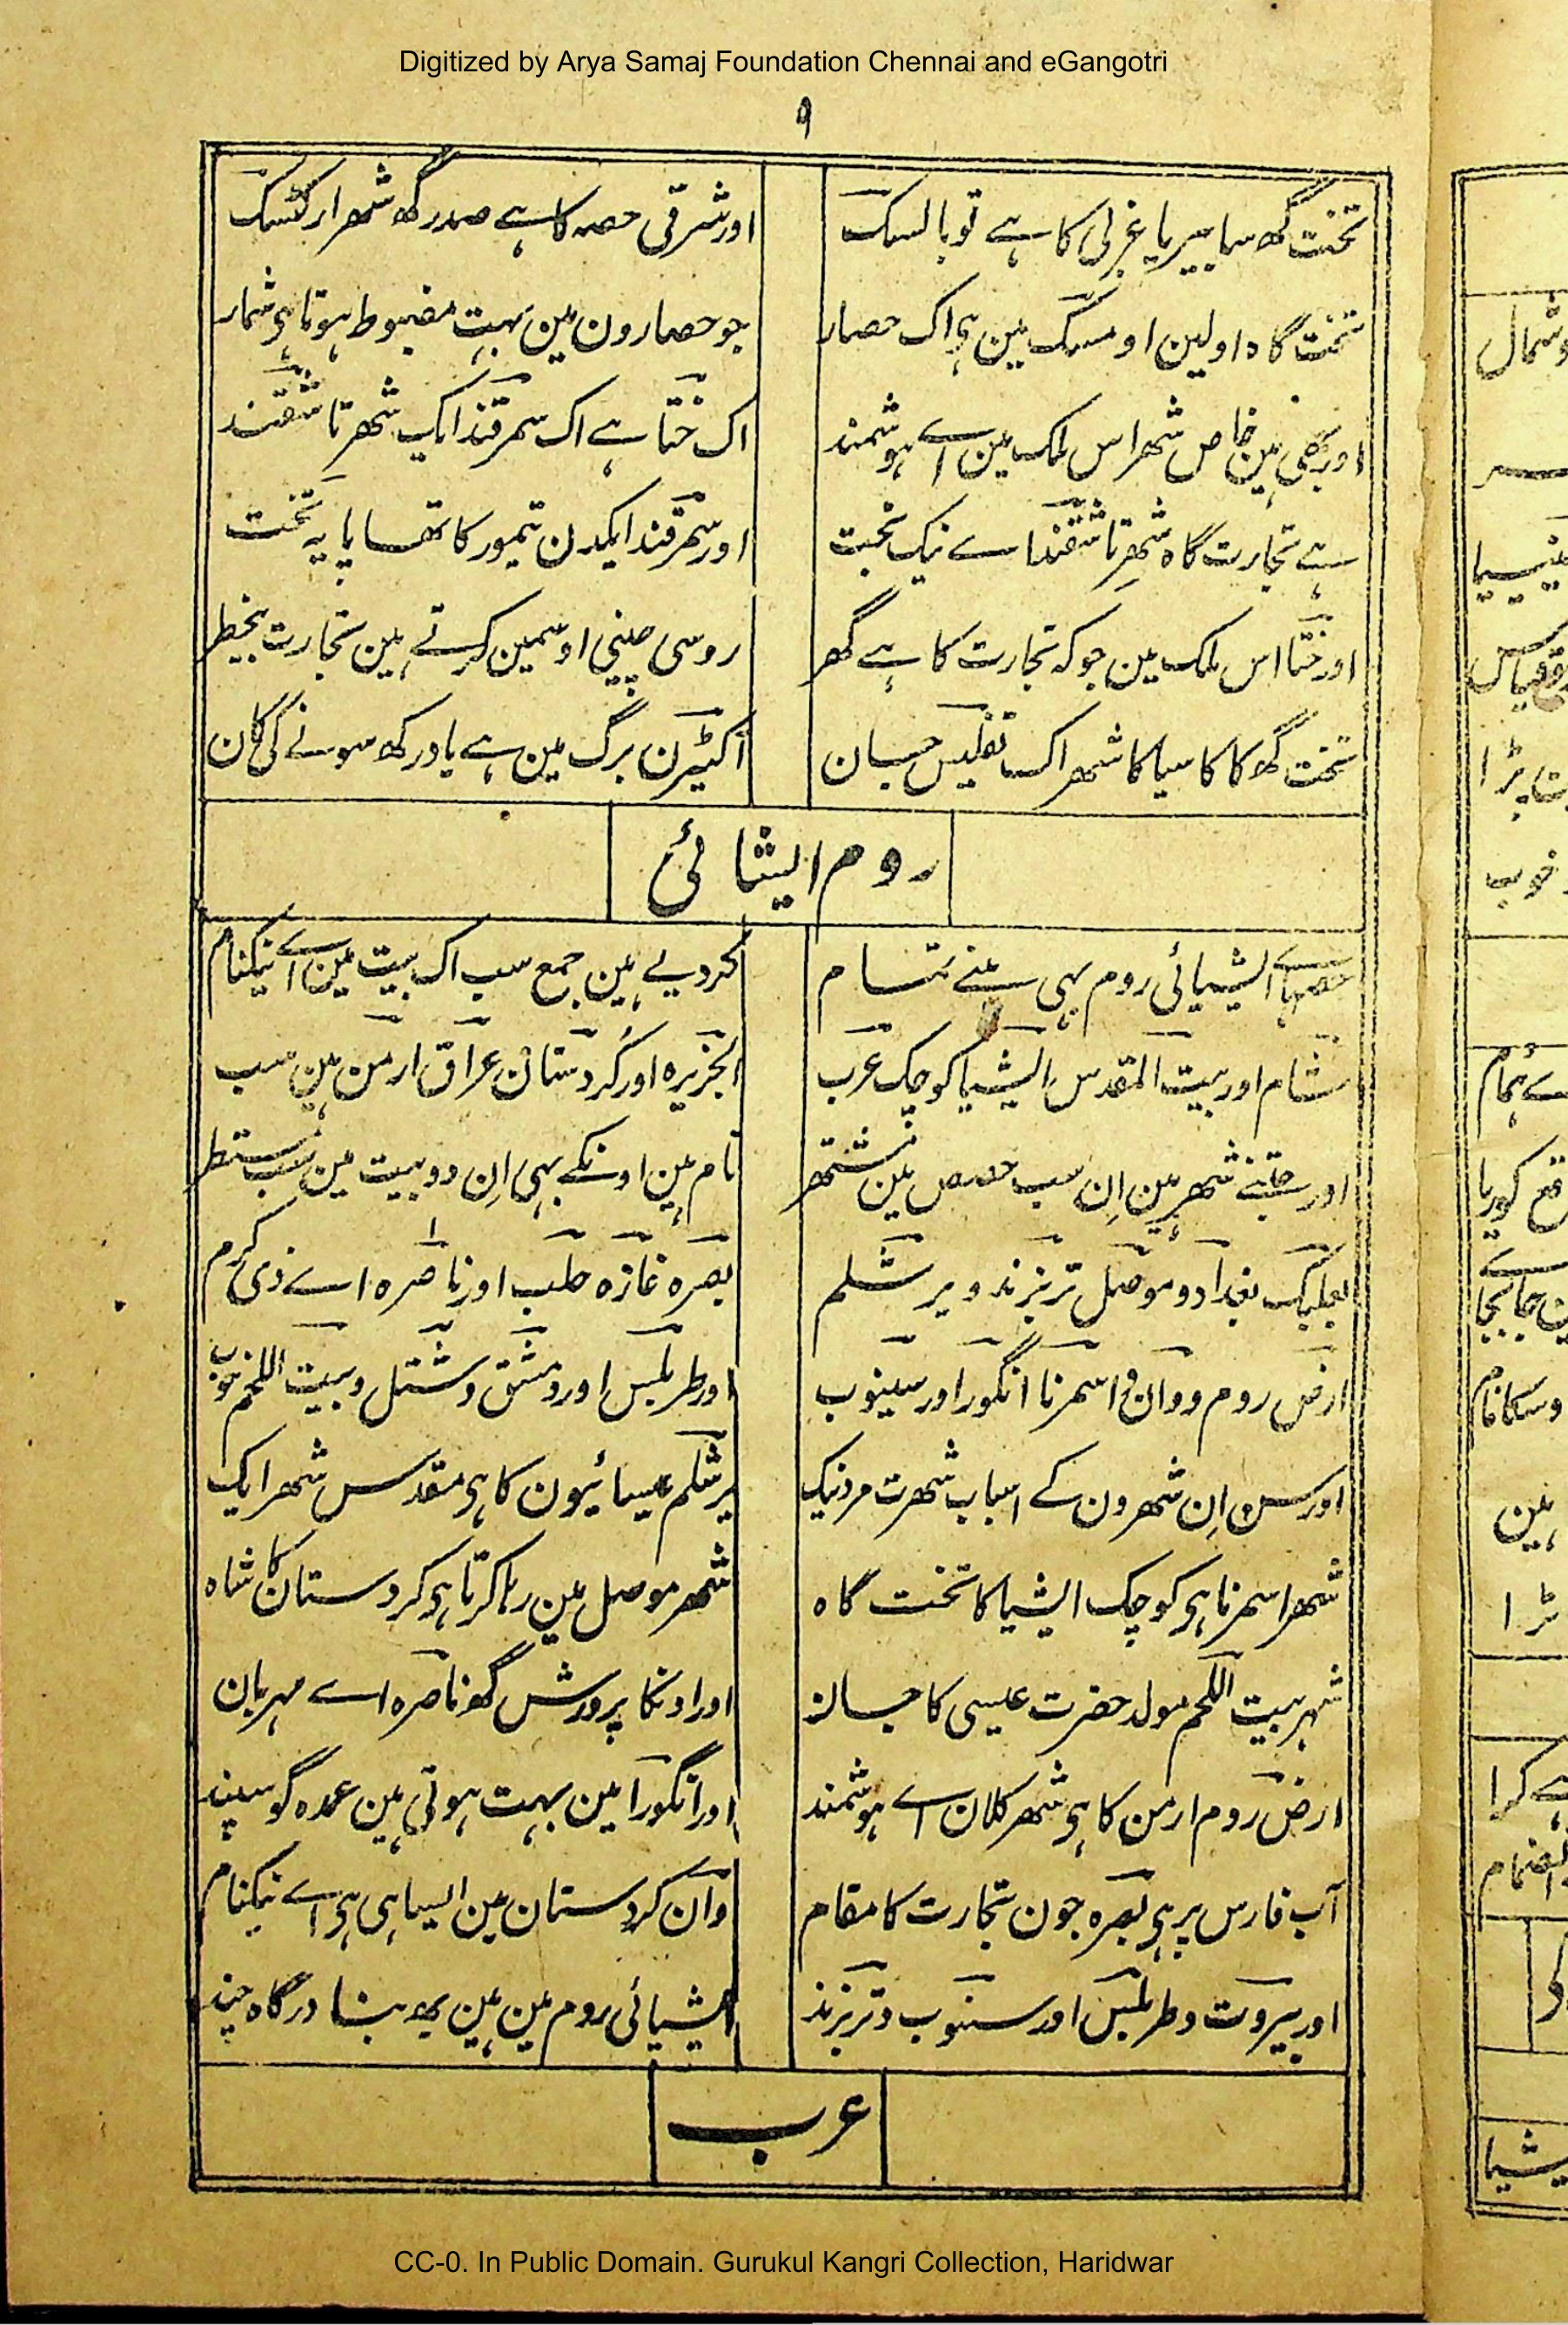 Digitized by Arya Samaj Foundation Chennai and eGangotri
۹
تخت گھ سابیریا غربی کا ہے توبالسک
اور شرقی حصہ کا ہے صدر گھ شھر ارکٹسک
تخت گاہ اولین اومسک مین ہی اک حصار
جو حصارون مین بہت مضبوط ہوتا ہی شمار
اور بھی ہین خاص شھر اس ملک مین اے ہوشمند
اک ختا ہے اک سمرقند ایک شھر تاشقند
ہے تجارت گاہ شھر تاشقند اے نیک بخت
اور سمرقند ایکدن تیمور کا تھا پایہ تخت
اور ختا اس ملک مین جو کہ تجارت کا ہے گھر
روسی چینی اوسمین کرتے ہین تجارت بیخطر
تخت گھ کاکاسیا کا شھر اک تفلیس جان
اکٹیرن برگ مین ہے یاد رکھ سونے کی کان
روم ایشائی
حصہائے ایشیائی روم بہی سنے تمام
کردیے ہین جمع سب اک بیت مین اے نیکنام
شام اور بیت المقدس ایشیا کوچک عرب
الجزیرہ اور کردستان عراق ارمن ہین سب
اور جتنے شھر ہین ان سب حصص مین مشتھر
نام ہین اونکے بہی ان دو بیت مین سب مستطر
بعلبک بغداد و موصل تربزند و یرشلم
بصرہ غازہ حلب اور ناصرہ اے ذی کرم
ارض روم و وان و اسمرنا انگورا ور سینوب
اور طربلس اور دمشق و شتل و بیت اللحم خوب
اور سن ان شھرون کے اسباب شھرت مرد نیک
یرشلم عیسائیون کا ہی مقدس شھر ایک
شھر اسمرنا ہی کوچک ایشیا کا تخت گاہ
شھر موصل مین رہا کرتا ہی کردستان کا شاہ
شہر بیت اللحم مولد حضرت عیسی کا جان
اور اونکا پرورش گھ ناصرہ اے مہربان
ارض روم ارمن کا ہی شھر کلان اے ہوشمند
اور انگورا مین بہت ہوتی ہین عمدہ گوسپند
آب فارس پر ہی بصرہ جون تجارت کا مقام
وان کردستان مین ایسا ہی ہی اے نیکنام
اور بیروت و طربلس اور سنوب و تربزند
ایشیائی روم مین ہین یہ بنا درگاہ چند
عرب
CC-0. In Public Domain. Gurukul Kangri Collection, Haridwar